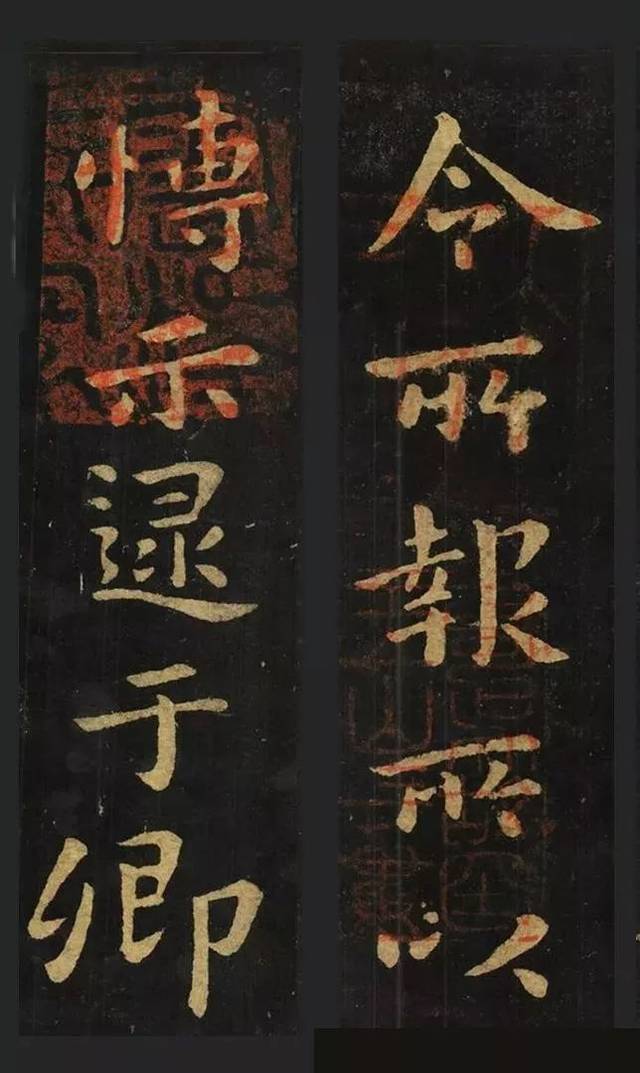 令所報所以
博示逮于卿